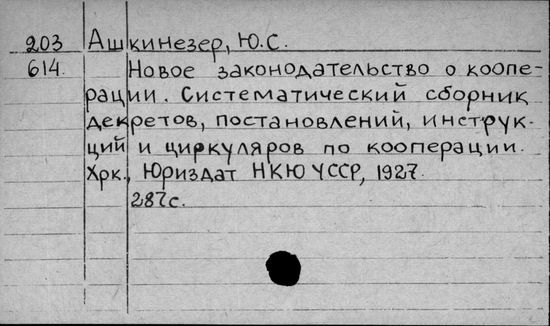 203 Ашкинезер, Ю.С.
614. Новое законодательство о коопе-
рации. Систематический сборник
декретов, постановлений, инструк-
ций и циркуляров по кооперации.
Хрк., Юриздат НКЮ УССР, 1927.
287с.